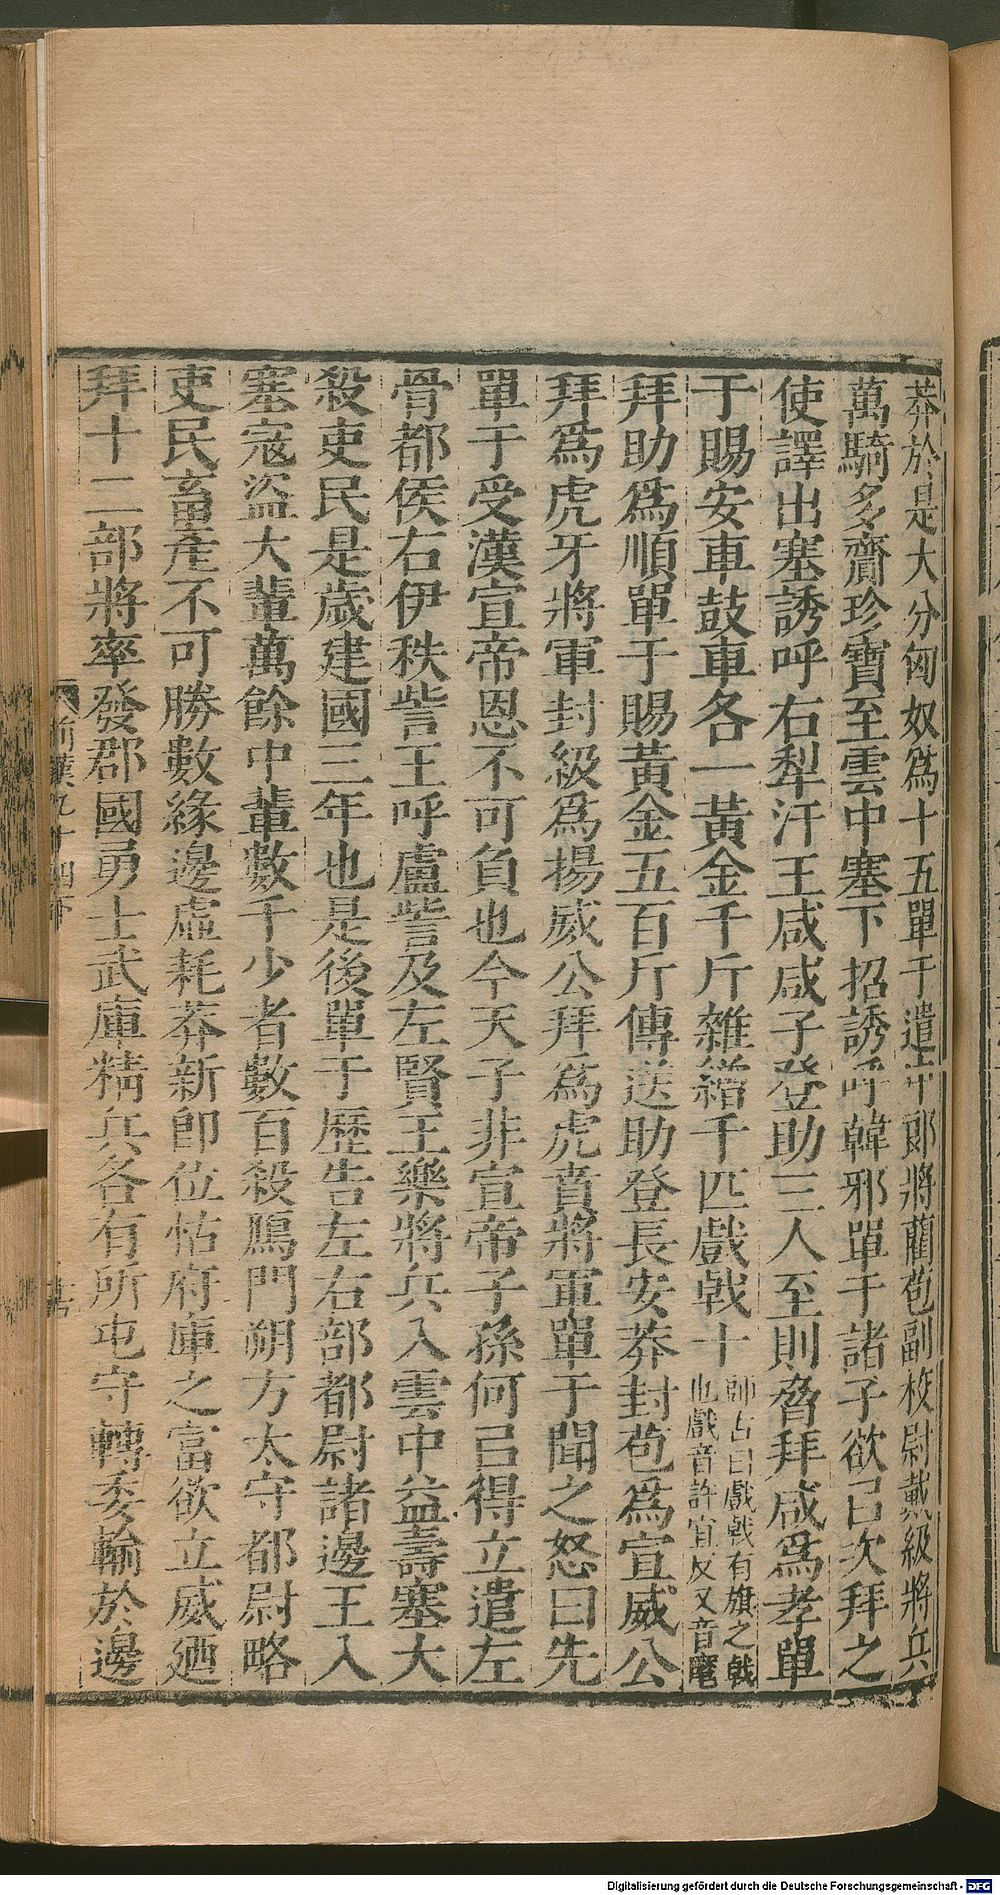 莽於是大分匈奴爲十五單于遣中郎將藺苞副校尉戴級將兵
萬騎多齎珍寶至雲中塞下招誘呼韓邪單于諸子欲㠯次拜之
使譯出塞誘呼右犁汗王咸咸子登助三人至則脅拜咸爲孝單
于賜安車鼓車各一黃金千斤雜繒千匹戲戟十
師古曰戲戟有旗之戟
也戲音許宜反又音麾
拜助爲順單于賜黃金五百斤傳送助登長安莽封苞爲宣威公
拜爲虎牙將軍封級爲揚威公拜爲虎賁將軍單于聞之怒曰先
單于受漢宣帝恩不可負也今天子非宣帝子孫何㠯得立遣左
骨都侯右伊秩訾王呼盧訾及左賢王樂將兵入雲中益壽塞大
殺吏民是歲建國三年也是後單于歷告左右部都尉諸邊王入
塞寇盜大輩萬餘中輩數千少者數百殺鴈門朔方太守都尉略
吏民畜產不可勝數緣邊虛耗莽新即位怙府庫之富欲立威廼
拜十二部將率發郡國勇士武庫精兵各有所屯守轉委輸於邊
前漢九十四下
Digitalisierung gefördert durch die Deutsche Forschungsgemeinschaft - DFG